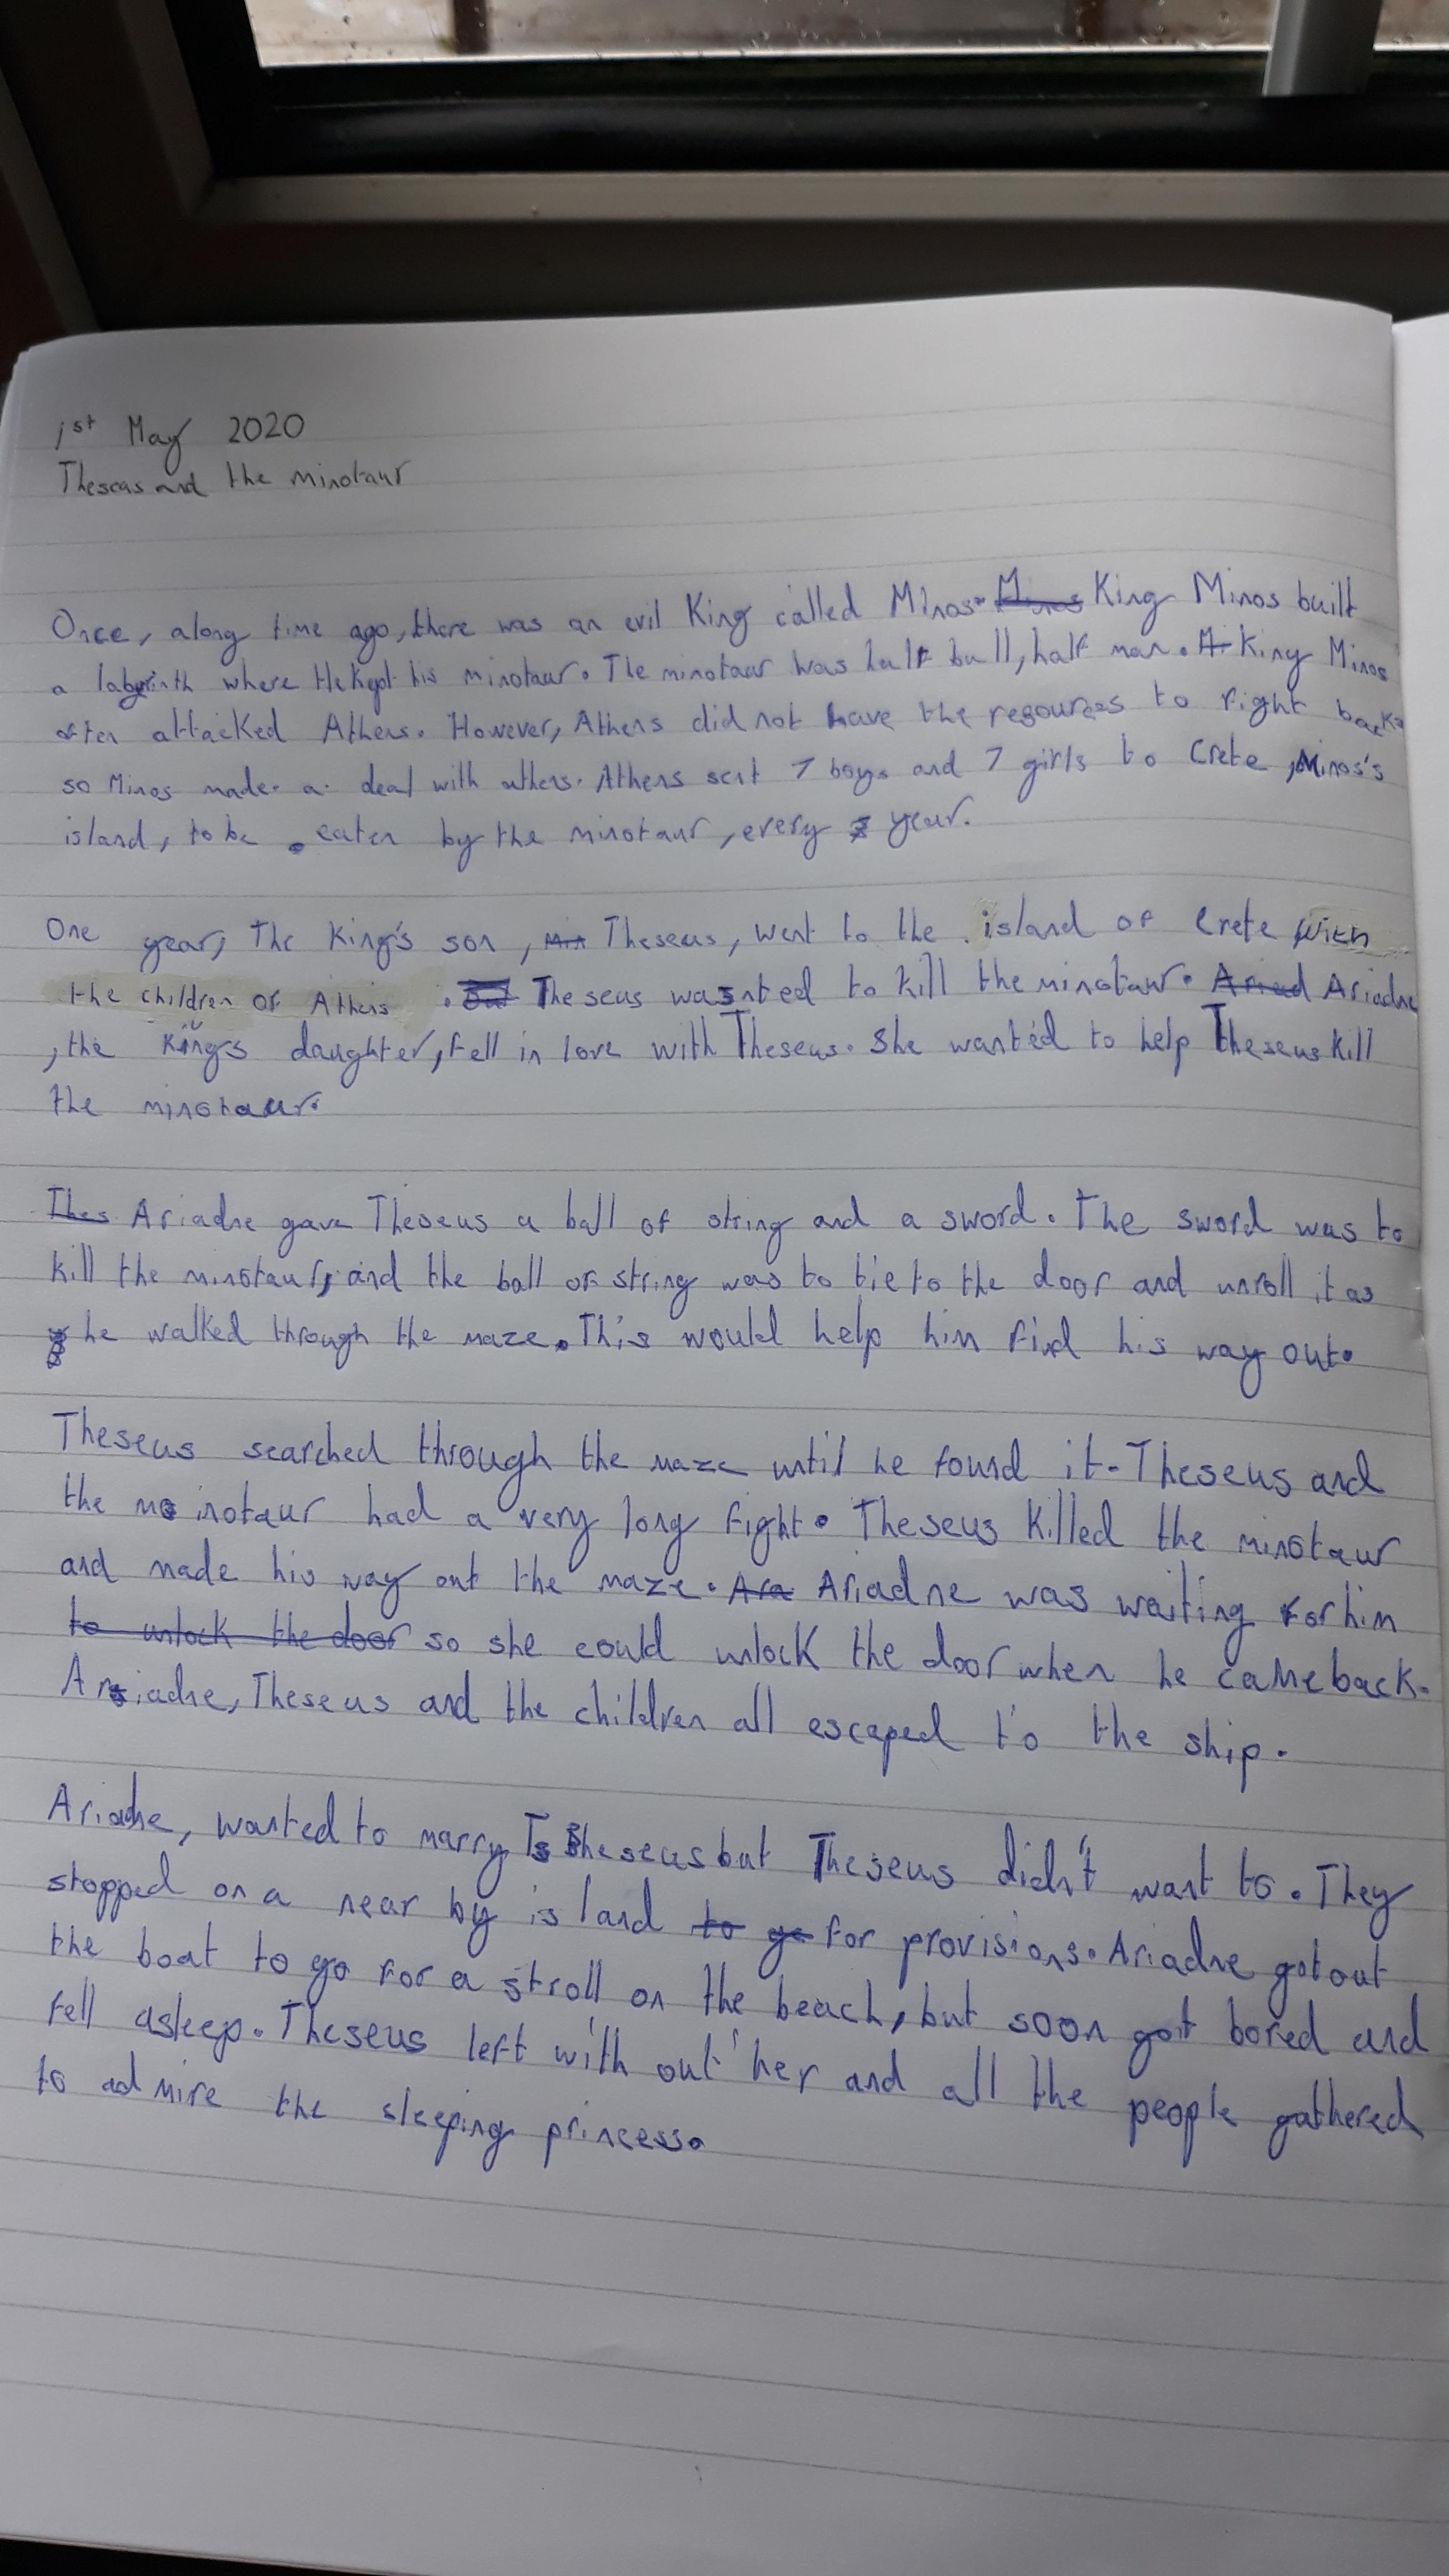 1st May 2020
Theseus and the minotaur
Once, along time ago, there was an evil King called Minos. Minos King Minos built
a labyrinth where He kept his minotaur. The minotaur was half bull, half man. A King Minos
often attacked Athens. However, Athens did not have the resources to fight back
so Minos made a deal with athens. Athens sent 7 boys and 7 girls to Crete, Minos's
island, to be eaten by the minotaur, every year.
One year, The King's son, Min Theseus, went to the island of Crete with
the children of Athens . Theseus wanted to kill the minotaur. Ariad Ariadne
, the King's daughter, fell in love with Theseus. She wanted to help Theseus kill
the minotaur.
Thes Ariadne gave Theseus a ball of string and a sword. The sword was to
kill the minotaur, and the ball of string was to tie to the door and unroll it as
he walked through the maze. This would help him find his way out.
Theseus searched through the maze until he found it. Theseus and
the minotaur had a very long fight. Theseus killed the minotaur
and made his way out the maze. Ara Ariadne was waiting for him
to unlock the door so she could unlock the door when he came back.
Ariadne, Theseus and the children all escaped to the ship.
Ariadne, wanted to marry Theseus but Theseus didn't want to. They
stopped on a near by island to go for provisions. Ariadne got out
the boat to go for a stroll on the beach, but soon got bored and
fell asleep. Theseus left with out her and all the people gathered
to admire the sleeping princess.